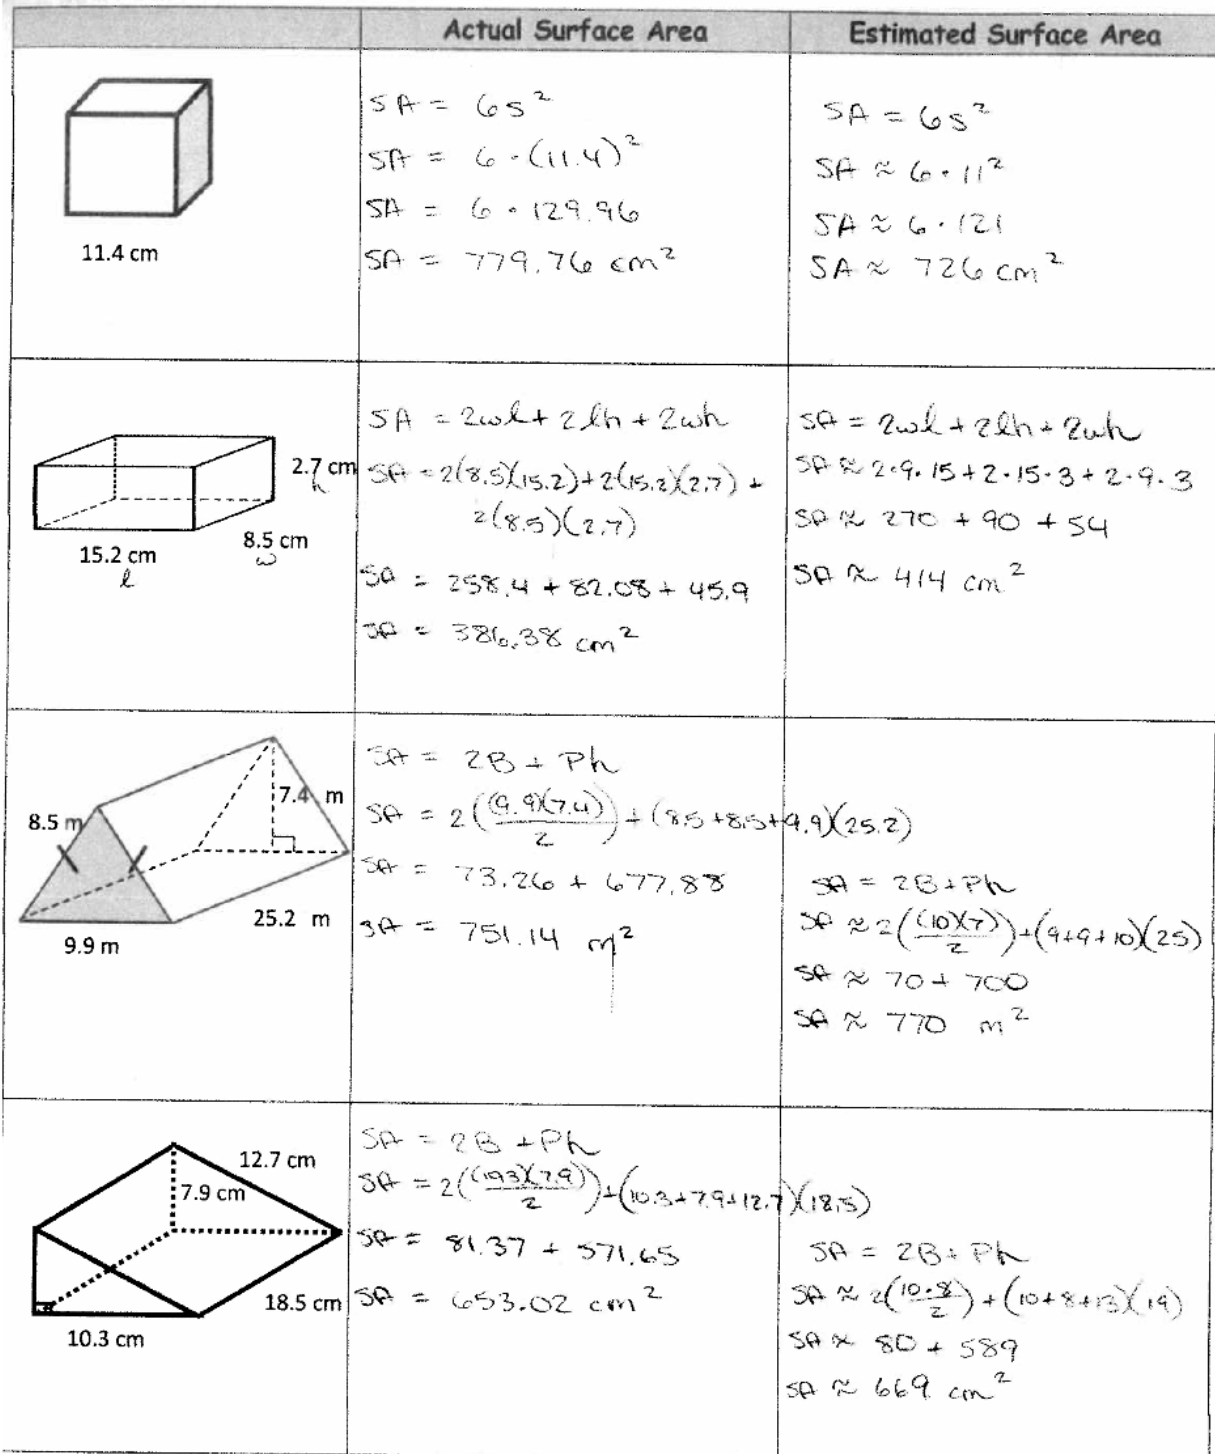 Actual Surface Area
Estimated Surface Area
11.4 cm
SA = 6s²
SA = 6 · (11.4)²
SA = 6 · 129.96
SA = 779.76 cm²
SA = 6s²
SA ≈ 6 · 11²
SA ≈ 6 · 121
SA ≈ 726 cm²
2.7 cm
h
8.5 cm
w
15.2 cm
l
SA = 2wl + 2lh + 2wh
SA = 2(8.5)(15.2) + 2(15.2)(2.7) +
2(8.5)(2.7)
SA = 258.4 + 82.08 + 45.9
SA = 386.38 cm²
SA = 2wl + 2lh + 2wh
SA ≈ 2·9·15 + 2·15·3 + 2·9·3
SA ≈ 270 + 90 + 54
SA ≈ 414 cm²
7.4 m
8.5 m
25.2 m
9.9 m
SA = 2B + Ph
SA = 2((9.9)(7.4)/2) + (8.5+8.5+9.9)(25.2)
SA = 73.26 + 677.88
SA = 751.14 m²
SA = 2B + Ph
SA ≈ 2((10)(7)/2) + (9+9+10)(25)
SA ≈ 70 + 700
SA ≈ 770 m²
12.7 cm
7.9 cm
18.5 cm
10.3 cm
SA = 2B + Ph
SA = 2((10.3)(7.9)/2) + (10.3+7.9+12.7)(18.5)
SA = 81.37 + 571.65
SA = 653.02 cm²
SA = 2B + Ph
SA ≈ 2(10·8/2) + (10+8+13)(19)
SA ≈ 80 + 589
SA ≈ 669 cm²